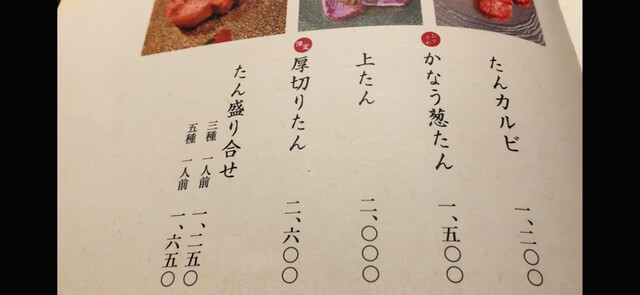 たんカルビ
一、二〇〇
かなう葱たん
一、五〇〇
上たん
二、〇〇〇
限定
厚切りたん
二、六〇〇
たん盛り合せ
三種 一人前 一、二五〇
五種 一人前 一、六五〇